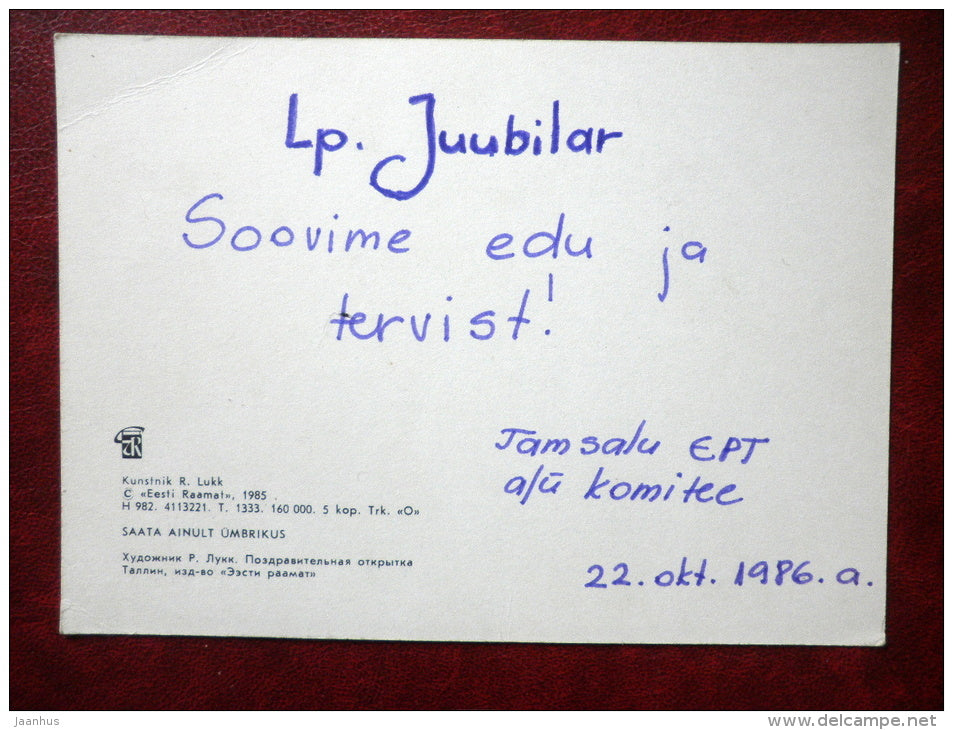 Lp. Juubilar
Soovime edu ja
tervist!
Tamsalu EPT
a/ü komitee
22. okt. 1986. a.
Kunstnik R. Lukk
© «Eesti Raamat», 1985
H 982. 4113221. T. 1333. 160 000. 5 kop. Trk. «O»
SAATA AINULT ÜMBRIKUS
Художник Р. Лукк. Поздравительная открытка
Таллин, изд-во «Ээсти раамат»
jaanhus
www.delcampe.net